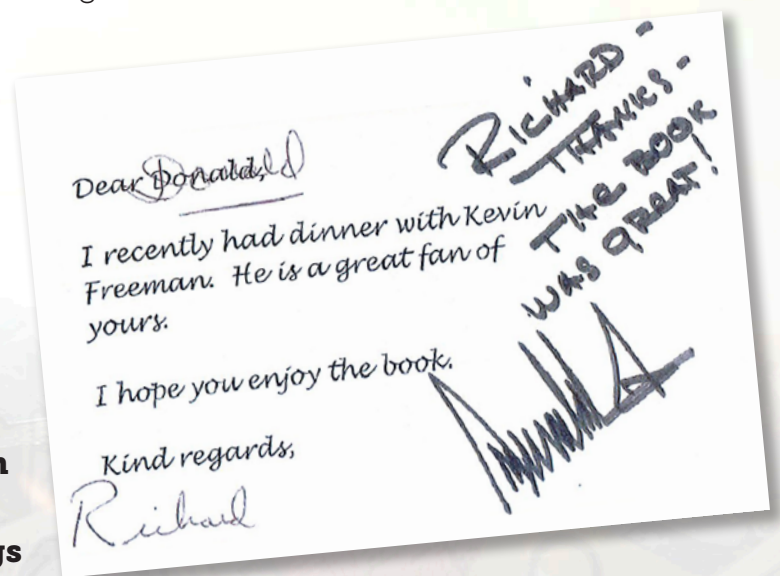 Dear Donald,
Donald
I recently had dinner with Kevin
Freeman. He is a great fan of
yours.
I hope you enjoy the book.
Kind regards,
Richard
RICHARD -
THANKS -
THE BOOK
WAS GREAT!